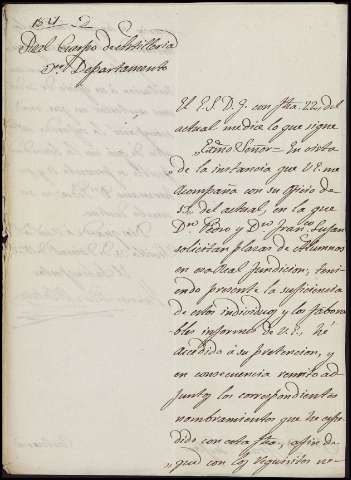 Real Cuerpo de Artilleria
Departamento
El E.S.D.G. con fha. 22, del
actual me dice lo que sigue
„Exmo Señor = En vista
de la instancia que V.E. me
acompaña con su oficio de
del actual, en la que
Dn. Pedro y Dn. Franco.
solicitan plazas de Alumnos
en esa Real fundicion; teni-
endo presente la suficiencia
de estos individuos y los favora-
bles informes de V.E., hé
accedido á su pretencion, y
en consecuencia remito ad-
juntos los correspondientes
nombramientos que he espe-
dido con esta fha., afin de
que con los requisitos ne-